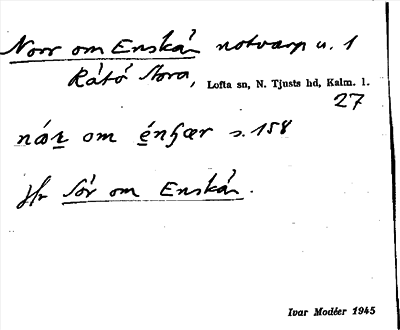 Norr om Enskär notvarp u. 1
Råtö Nora, Lofta sn, N. Tjusts hd, Kalm. l.
27
nár om énʃær s. 158
Jfr Sör om Enskär.
Ivar Modéer 1945